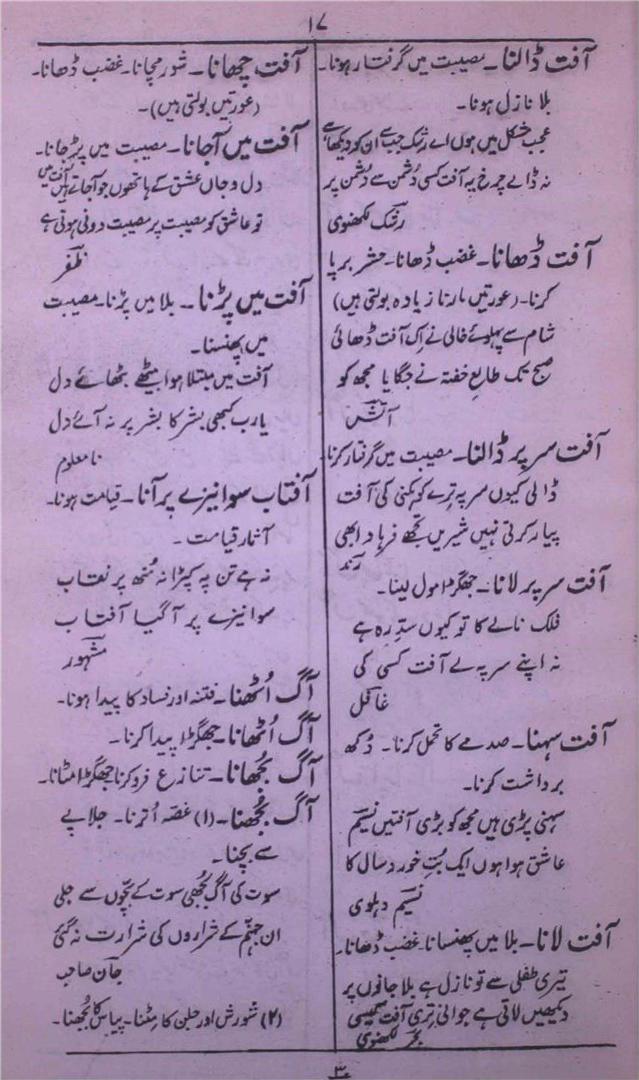 ۱۷
آفت ڈالنا۔ مصیبت میں گرفتار ہونا۔
بلا نازل ہونا۔
عجب مشکل میں ہوں اے رشک جب سے ان کو دیکھا ہے
نہ ڈالے چرخ یہ آفت کسی دشمن سے دشمن پر
رشک لکھنوی
آفت ڈھانا۔ غضب ڈھانا۔ حشر برپا
کرنا۔ (عورتیں مارنا زیادہ بولتی ہیں)
شام سے پہلوئے خالی نے اِک آفت ڈھائی
صبح تک طالعِ خفتہ نے جگایا مجھ کو
آتش
آفت سر پر ڈالنا۔ مصیبت میں گرفتار کرنا
ڈالی کیوں سر پہ ترے کوہکنی کی آفت
پیار کرتی نہیں شیریں تجھے فرہاد ابھی
رند
آفت سر پر لانا۔ جھگڑا مول لینا۔
فلک نالے کا تو کیوں سدِّ رہ ہے
نہ اپنے سر پہ لے آفت کسی کی
غافل
آفت سہنا۔ صدمے کا تحمل کرنا۔ دُکھ
برداشت کرنا۔
سہنی پڑی ہیں مجھ کو بڑی آفتیں نسیم
عاشق ہوا ہوں ایک بُتِ خورد سال کا
نسیم دہلوی
آفت لانا۔ بلا میں پھنسانا۔ غضب ڈھانا۔
تیری طفلی سے تو نازل ہے بلا جانوں پر
دیکھیں لاتی ہے جوانی تری آفت کیسی
بحر لکھنوی
آفت مچانا۔ شور مچانا۔ غضب ڈھانا۔
(عورتیں بولتی ہیں)۔
آفت میں آجانا۔ مصیبت میں پڑجانا۔
دل و جاں عشق کے ہاتھوں جو آجاتے ہیں آفت میں
تو عاشق کو مصیبت پر مصیبت دونی ہوتی ہے
ظفر
آفت میں پڑنا۔ بلا میں پڑنا۔ مصیبت
میں پھنسنا۔
آفت میں مبتلا ہوا بیٹھے بٹھائے دل
یارب کبھی بشر کا بشر پر نہ آئے دل
نامعلوم
آفتاب سوا نیزے پر آنا۔ قیامت ہونا۔
آثار قیامت۔
نہ ہے تن پہ کپڑا نہ مُنھ پر نقاب
سوا نیزے پر آ گیا آفتاب
مشہور
آگ اُٹھنا۔ فتنہ اور فساد کا پیدا ہونا۔
آگ اُٹھانا۔ جھگڑا پیدا کرنا۔
آگ بجھانا۔ تنازع فرو کرنا جھگڑا مٹانا۔
آگ بُجھنا۔ (۱) غصّہ اُترنا۔ جلاپے
سے بچنا۔
سوت کی آگ بُجھی سوت کے بچّوں سے جلی
ان جہنّم کے شراروں کی شرارت نہ گئی
جان صاحب
(۲) شورش اور جلن کا مٹنا۔ پیاس کا بُجھنا۔
۳